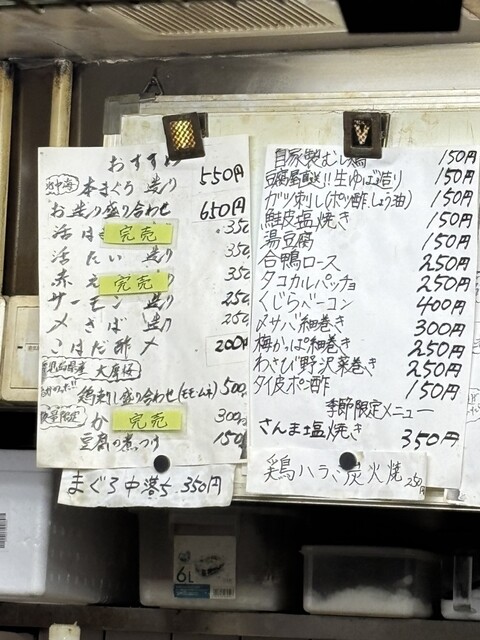 おすすめ
地中海 本まぐろ 造り 550円
お造り盛り合わせ 650円
活は 完売 350
活たい 造り 350
赤え 完売 350
サーモン 造り 250
〆さば 造り 250
こはだ酢〆 200円
鶏刺し盛り合わせ(モモ・ムネ) 500
数量限定 か 完売 300
豆腐の煮つけ 150
まぐろ中落ち 350円
自家製むし鶏 150円
豆腐屋直送!!生ゆば造り 150円
ガツ刺し(ポン酢、しょう油) 150円
鮭皮塩焼き 150円
湯豆腐 150円
合鴨ロース 250円
タコカルパッチョ 250円
くじらベーコン 400円
〆サバ細巻き 300円
梅かっぱ細巻き 250円
わさび野沢菜巻き 250円
タイ皮ポン酢 150円
季節限定メニュー
さんま塩焼き 350円
鶏ハラミ炭火焼 250円
6L